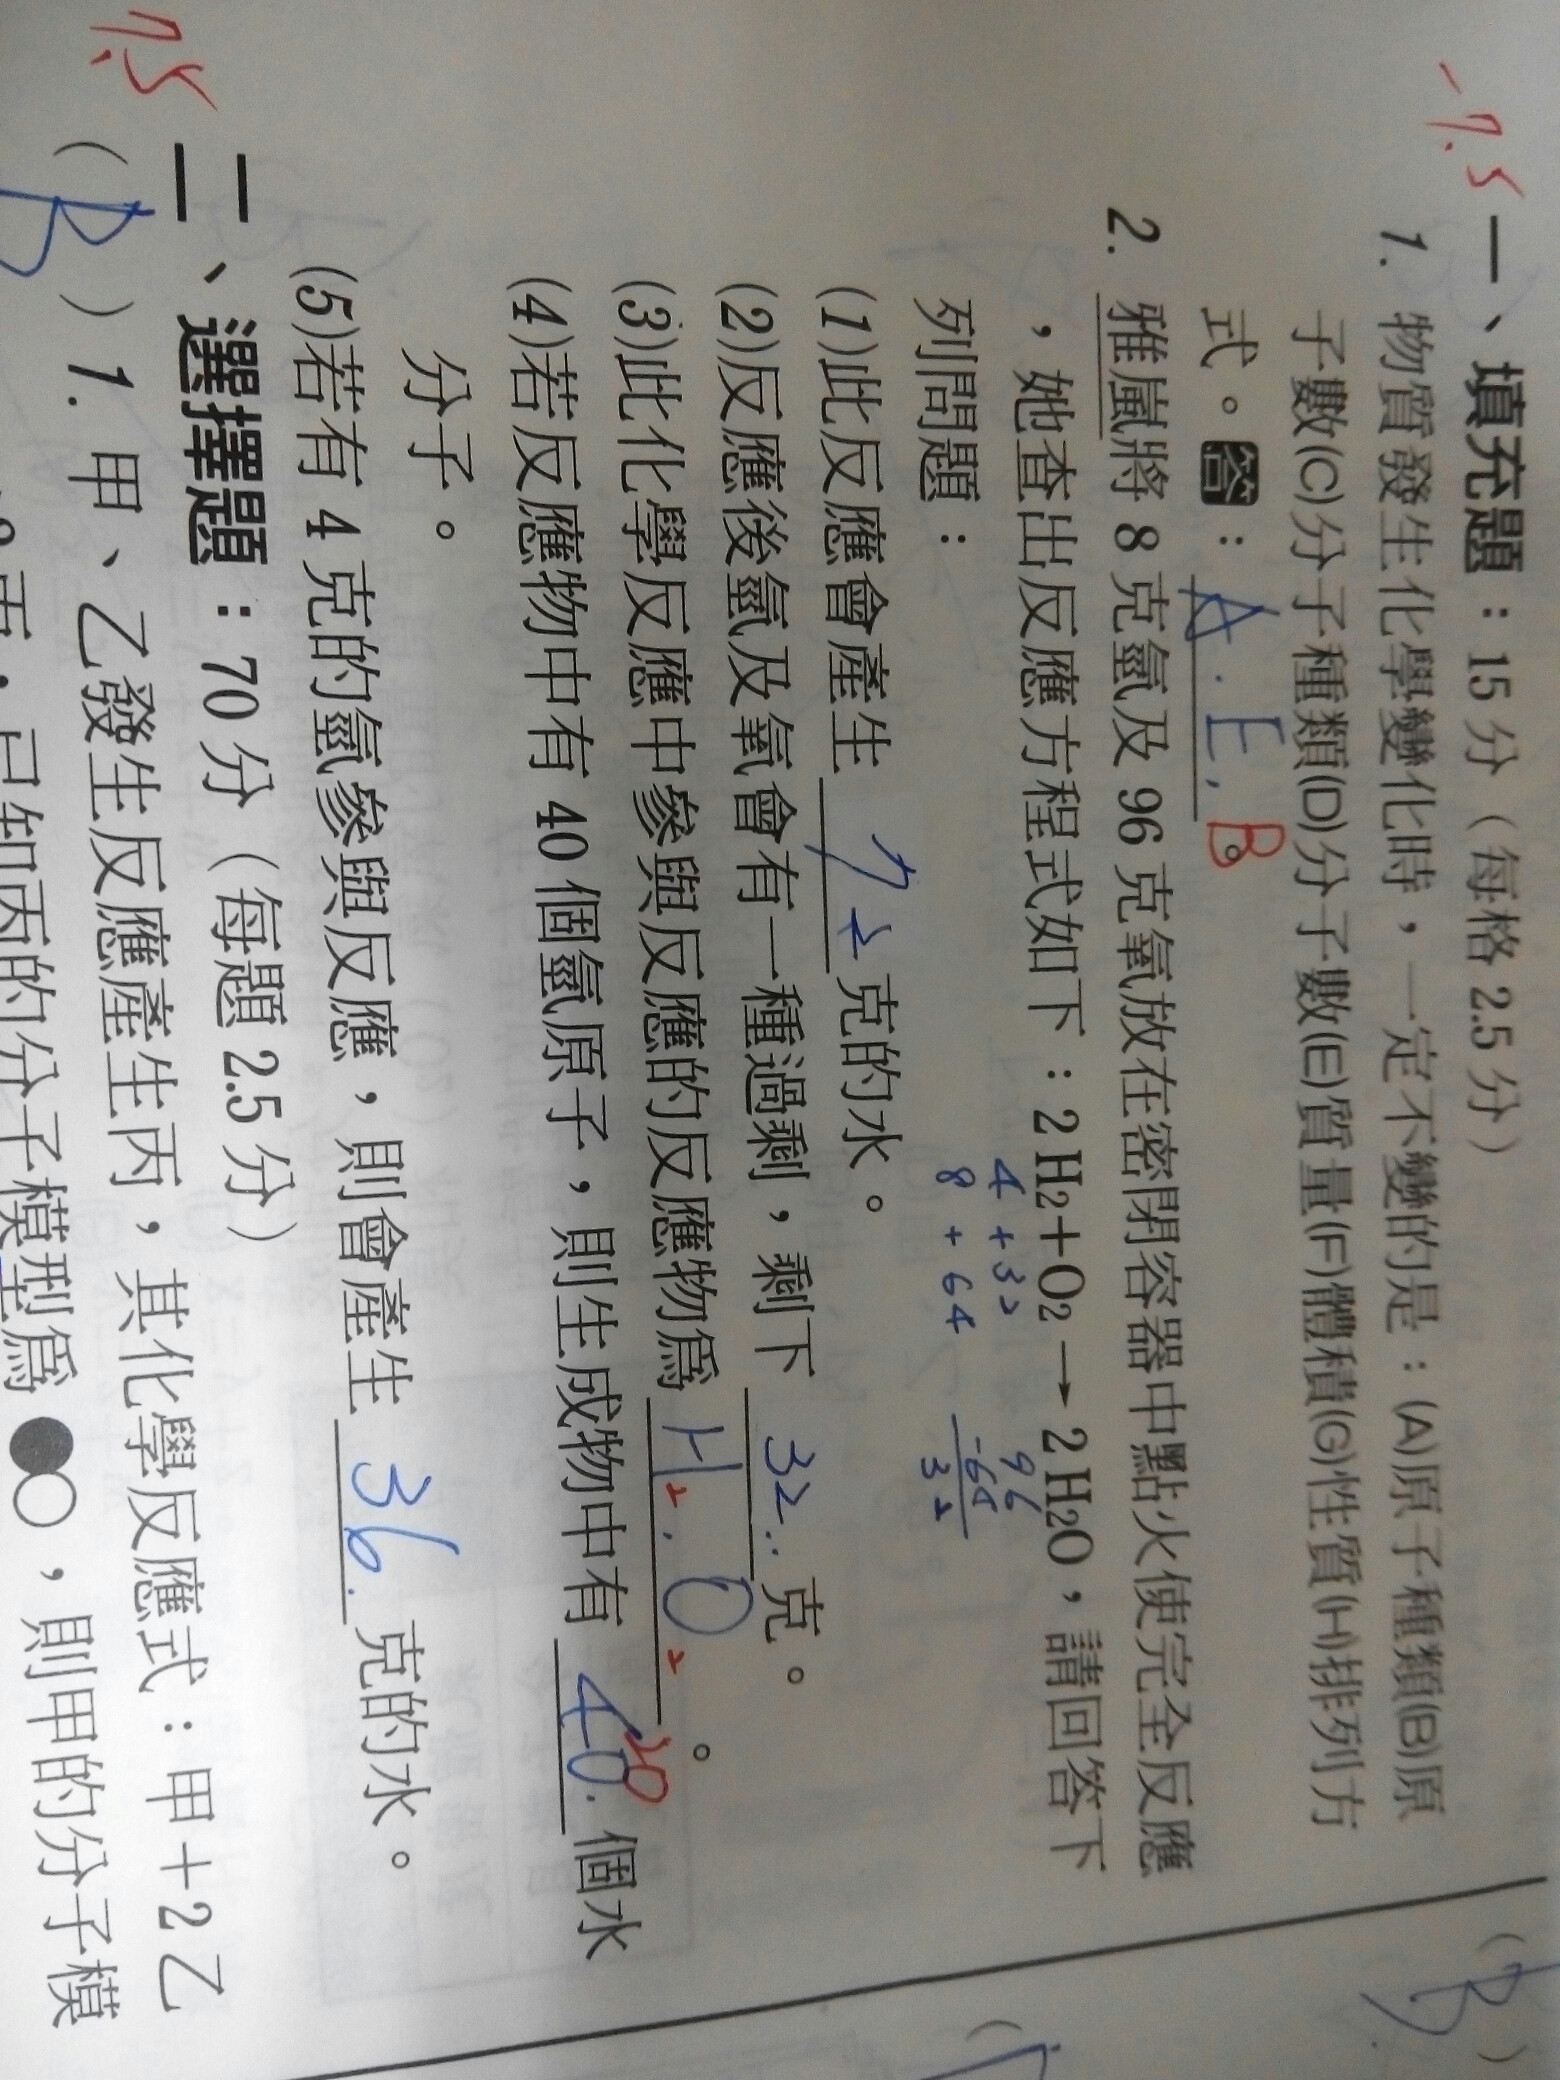 -7.5
一、填充題：15分（每格2.5分）
1. 物質發生化學變化時，一定不變的是：(A)原子種類(B)原
子數(C)分子種類(D)分子數(E)質量(F)體積(G)性質(H)排列方
式。答：A.E.B。
2. 雅嵐將8克氫及96克氧放在密閉容器中點火使完全反應
，她查出反應方程式如下：2H₂+O₂→2H₂O，請回答下
4+32
8+64
96
-64
32
列問題：
(1)此反應會產生72克的水。
(2)反應後氫及氧會有一種過剩，剩下32..克。
(3)此化學反應中參與反應的反應物為H₂.O₂。
(4)若反應物中有40個氫原子，則生成物中有40.20個水
分子。
(5)若有4克的氫參與反應，則會產生36.克的水。
7.5
二、選擇題：70分（每題2.5分）
（B）1. 甲、乙發生反應產生丙，其化學反應式：甲＋2乙
已知丙的分子模型為●○，則甲的分子模
（B）